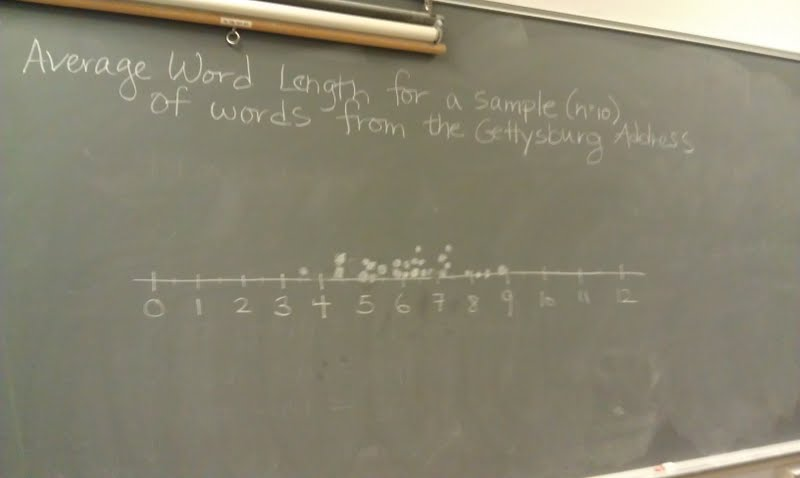 Average Word Length for a sample (n=10)
of words from the Gettysburg Address
0 1 2 3 4 5 6 7 8 9 10 11 12